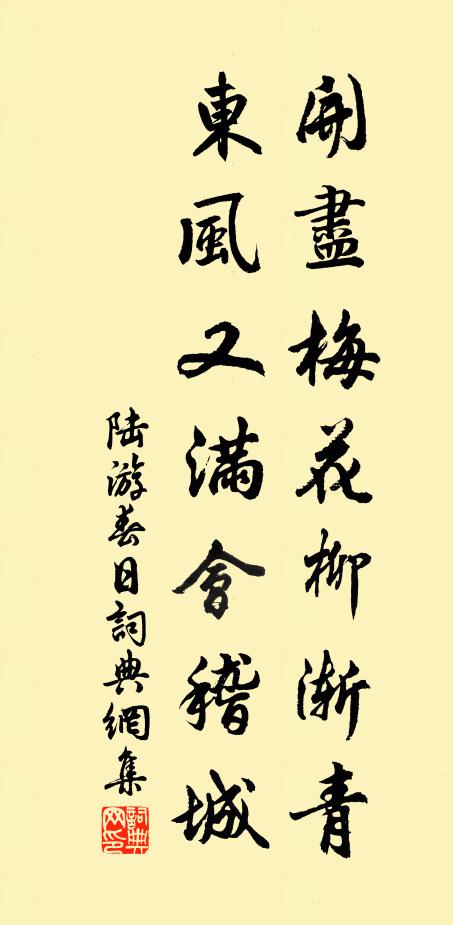 開盡梅花柳漸青
東風又滿會稽城
陸游春日詞典網集
詞典网印